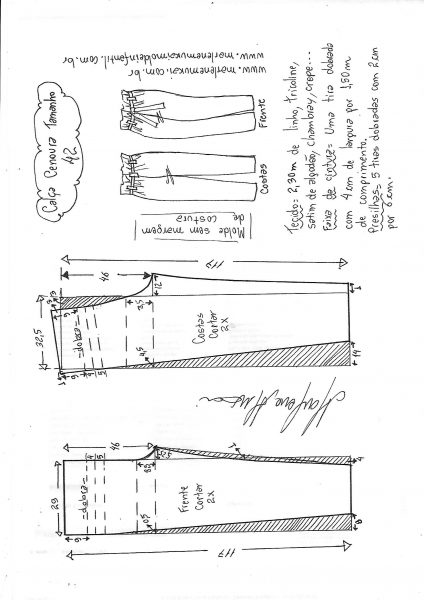 Calça Cenoura Tamanho
42
www.marlenemukai.com.br
www.marlenemukaimoldeinfantil.com.br
Frente
Costas
Molde sem margem
de costura
Tecido= 2,30m de linho, tricoline,
satim de algodão, chambray, crepe...
Faixa de cintura= Uma tira dobrada
com 4cm de largura por 1,50m
de comprimento.
Presilhas= 5 tiras dobradas com 2cm
por 6cm.
117
46
32,5
=dobra=
Costas
Cortar
2x
12
1
14
117
46
29
=dobra=
Frente
Cortar
2x
0,5
4
8
117
Marlene Mukai